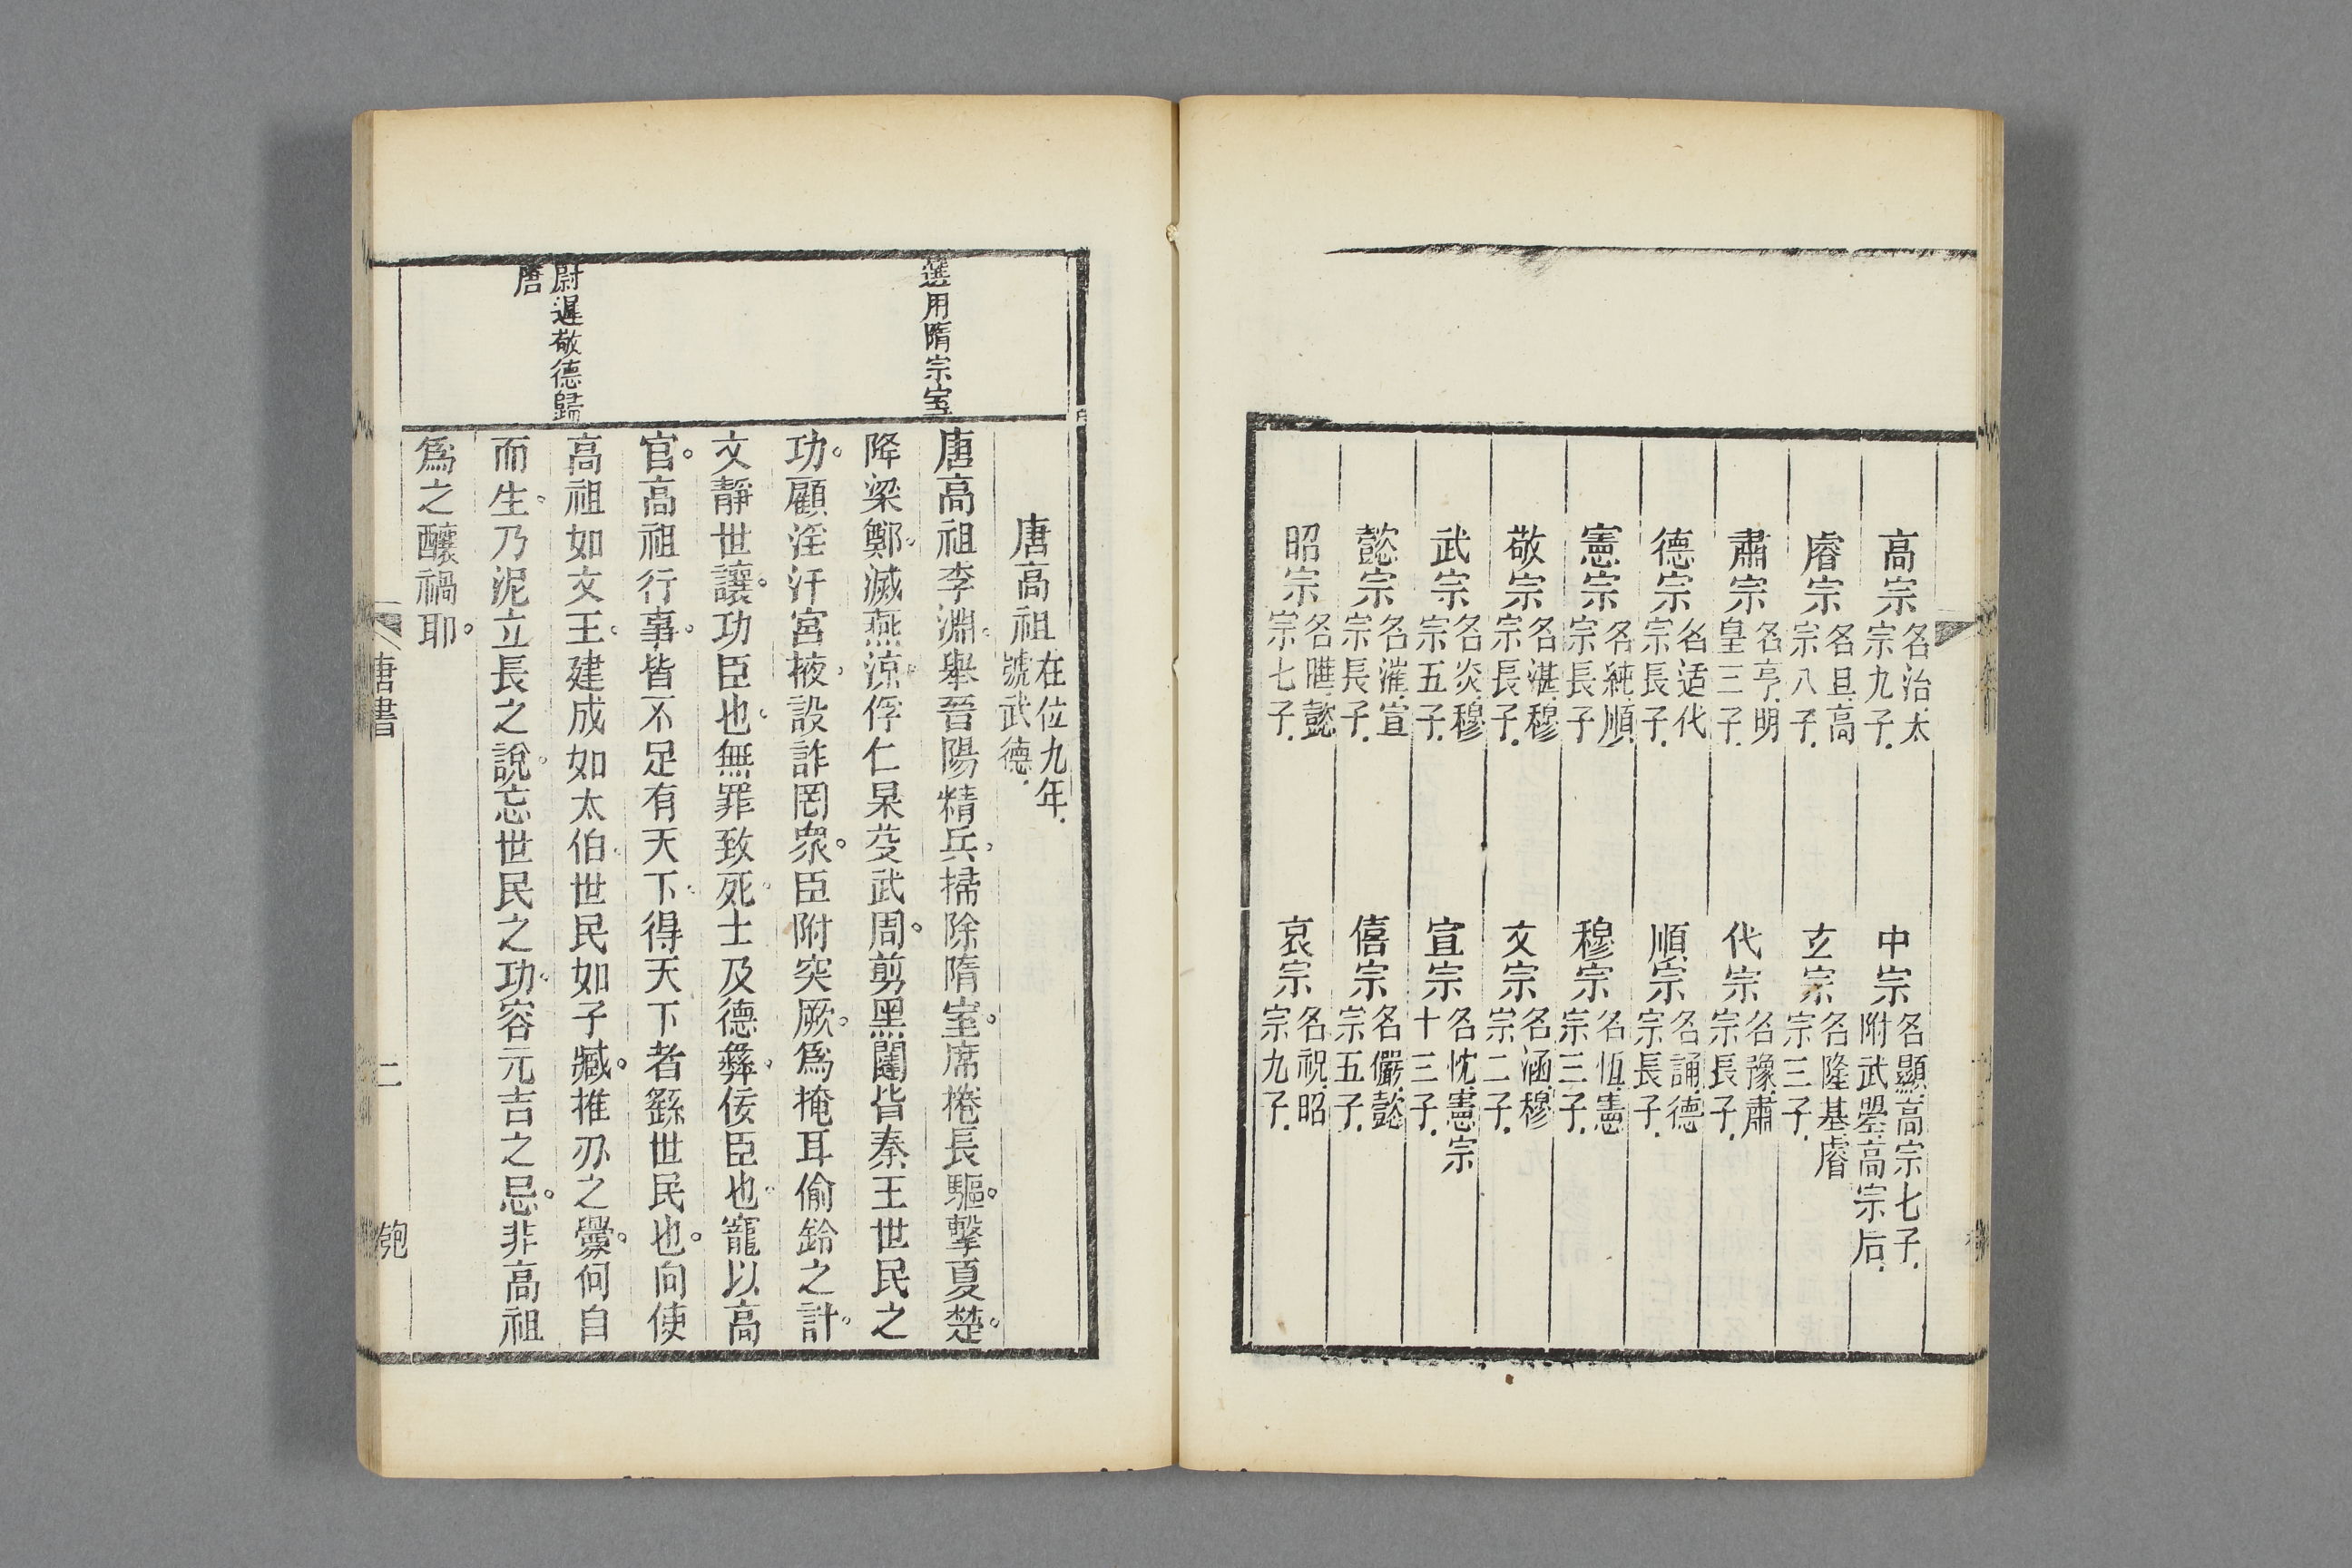 高宗 名治.太宗九子.
中宗 名顯.高宗七子.附武曌.高宗后.
睿宗 名旦.高宗八子.
玄宗 名隆基.睿宗三子.
肅宗 名亨.明皇三子.
代宗 名豫.肅宗長子.
德宗 名适.代宗長子.
順宗 名誦.德宗長子.
憲宗 名純.順宗長子
穆宗 名恆.憲宗三子.
敬宗 名湛.穆宗長子.
文宗 名涵.穆宗二子.
武宗 名炎.穆宗五子.
宣宗 名忱.憲宗十三子.
懿宗 名漼.宣宗長子.
僖宗 名儼.懿宗五子.
昭宗 名曄.懿宗七子.
哀宗 名祝.昭宗九子.
唐高祖 在位九年.號武德.
選用隋宗室
唐高祖李淵。舉晉陽精兵。掃除隋室。席捲長驅。擊夏楚。
降梁鄭。滅燕涼。俘仁杲。芟武周。剪黑闥。皆秦王世民之
功。顧淫汙宮掖。設詐罔衆。臣附突厥。爲掩耳偷鈴之計。
文靜世讓。功臣也。無罪致死。士及德彝。佞臣也。寵以高
官。高祖行事。皆不足有天下。得天下者繇世民也。向使
尉遲敬德歸
唐
高祖如文王。建成如太伯。世民如子臧。推刃之釁。何自
而生。乃泥立長之說。忘世民之功。容元吉之忌。非高祖
爲之釀禍耶。
唐書
二